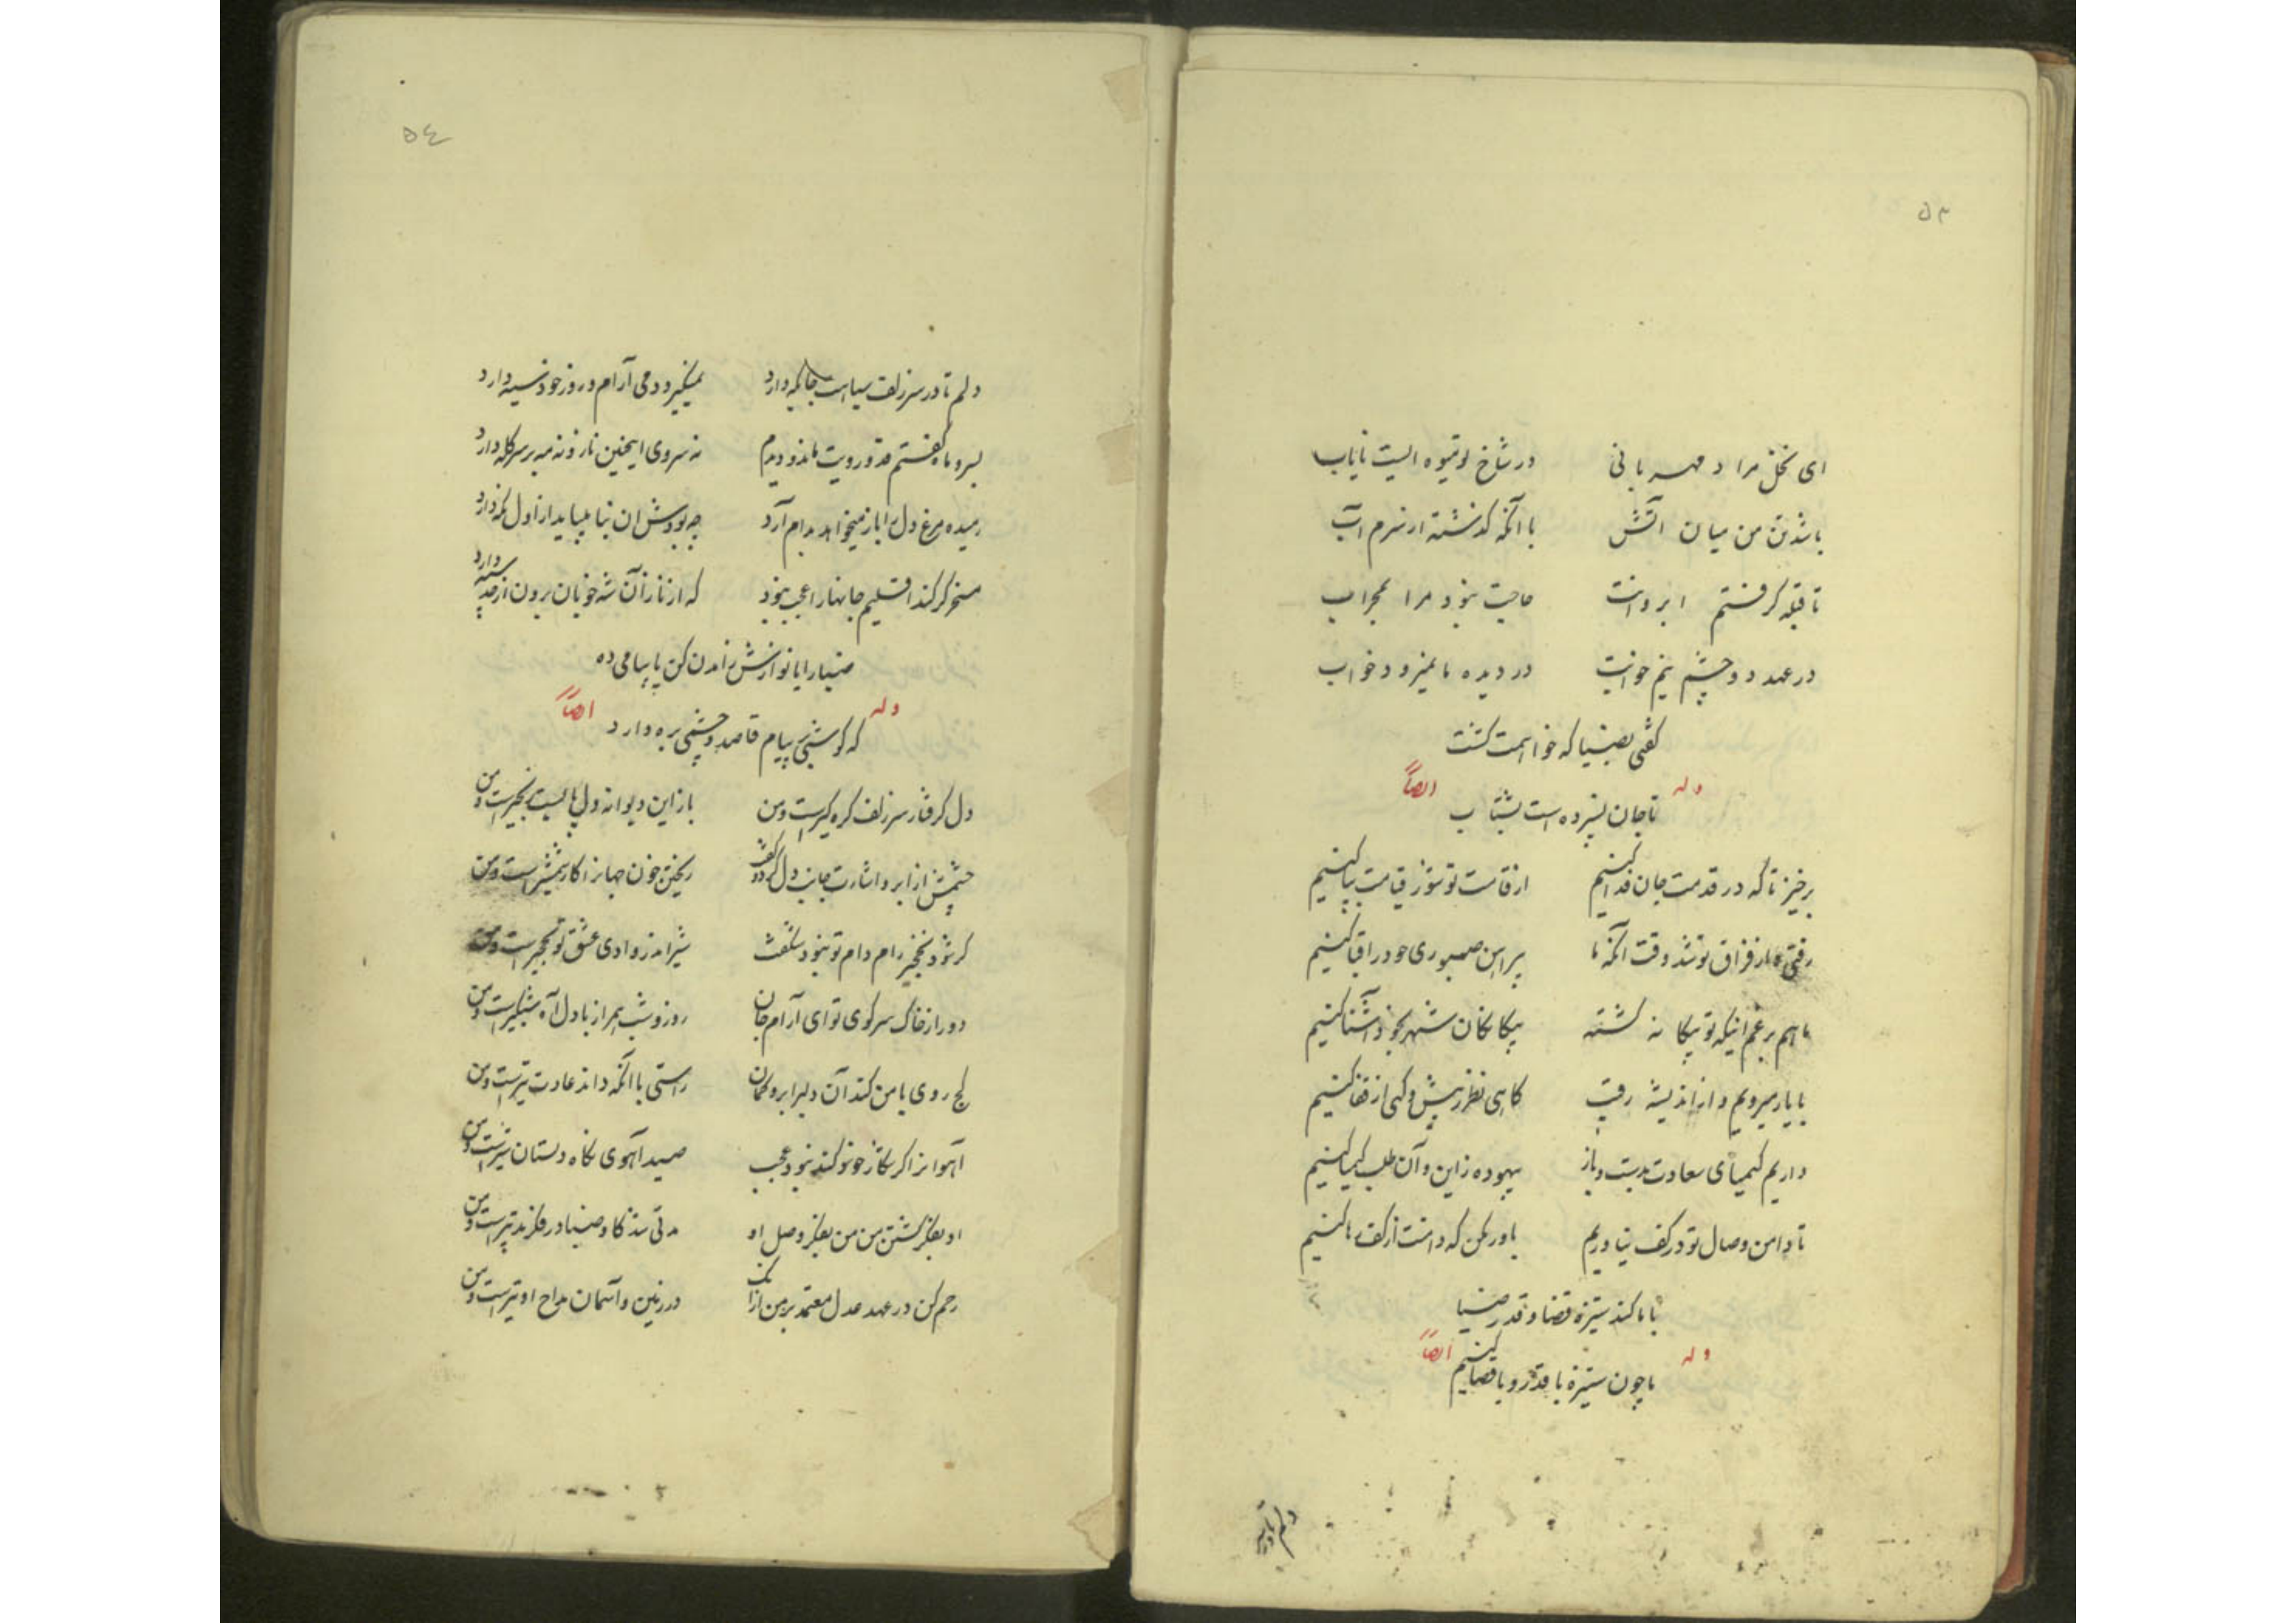 ۵۳
ای نخل مراد مهربانی در شاخ تو میوه ایست نایاب
باشد تن من میان آتش با آنکه گذشته از سرم آب
تا قبله گرفتم ابروانت حاجت نبود مرا بمحراب
در عهد دو چشم نیم خوابت در دیده ما نمیرود خواب
گفتی بضیا که خواهمت کشت
تا جان نسپرده است بشتاب
وله ایضاً
برخیز تا که در قدمت جان فدا کنیم از قامت تو شور قیامت بپا کنیم
رفتی ز فراق تو شد وقت آنکه ما پیراهن صبوری خود را قبا کنیم
ما هم برغم اینکه تو بیگانه گشته بیگانگان شهر بخود آشنا کنیم
با یار میرویم و از اندیشه رقیب گاهی نظر ز پیش و گهی از قفا کنیم
داریم کیمیای سعادت بدست و باز بیهوده ز این و آن طلب کیمیا کنیم
تا دامن وصال تو در کف نیاوریم باور مکن که دامنت از کف رها کنیم
با ما کند ستیزه قضا و قدر ضیا
ما چون ستیزه با قدر و با قضا کنیم
وله ایضاً
دلم تا در سر
۵٤
دلم تا در سر زلف سیاهت جایگه دارد نمیگیرد دمی آرام و روز خود سیه دارد
بسرو و ماه گفتم قد و رویت ماند و دیدم نه سروی اینچنین ناز و نه مه بر سر کله دارد
رمیده مرغ دل را باز میخواهد بدام آرد چه بودش ان نمیبایداز اول نگه دارد
مسخر گر کند اقلیم جانها را عجب نبود که از ناز آن شه خوبان برون از حد سپه دارد
ضیا را یا نوازش ز آمدن کن یا پیامی ده
که گوشی بر پیام قاصد و چشمی بره دارد
وله ایضاً
دل گرفتار سر زلف گره گیرست و من باز این دیوانه دل پابست زنجیرست و من
چشمش از ابرو اشارت جانب دل کرد و گفت ریختن خون جهانرا کار شمشیرست و من
گر شود نخجیر رام دام تو نبود شگفت شیر اندر وادی عشق تو نخجیرست و من
دور از خاک سر کوی تو ای آرام جان روز و شب همراز با دل آه شبگیرست و من
کج روی با من کند آن دلبر ابرو کمان راستی با آنکه داند عادت تیرست و من
آهوانرا گر شکار خود کند نبود عجب صید آهوی نگاه دلستان شیرست و من
او بفکر کشتن من من بفکر وصل او مدتی شد کاو ضیا در فکر تدبیرست و من
رحم کن در عهد عدل معتمد بر من از آنک در زمین و آسمان مداح او تیرست و من